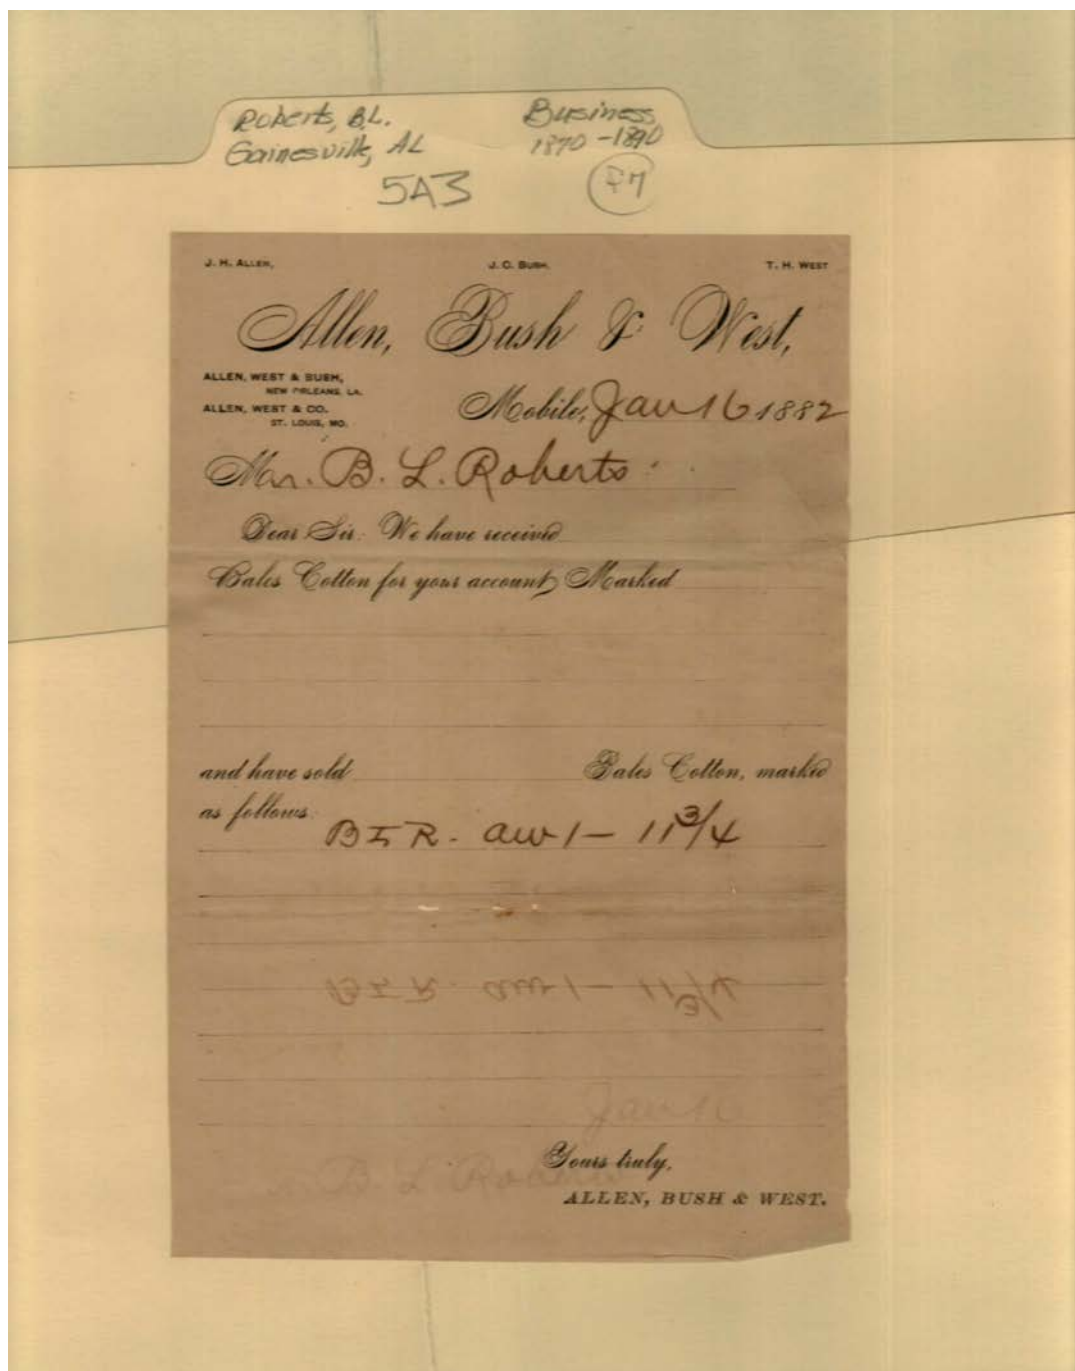 Roberts, B.L. Business
Gainesville, AL 1870-1890
5A3 F7
J. H. ALLEN, J. C. BUSH, T. H. WEST
Allen, Bush & West,
ALLEN, WEST & BUSH,
NEW ORLEANS, LA.
ALLEN, WEST & CO.
ST. LOUIS, MO.
Mobile, Jan 16 1882
Mr. B. L. Roberts
Dear Sir: We have received
Bales Cotton for your account, Marked
and have sold Bales Cotton, marked
as follows:
B I R. aw 1 - 11 3/4
Jan 16
Yours truly,
B L Roberts
ALLEN, BUSH & WEST.